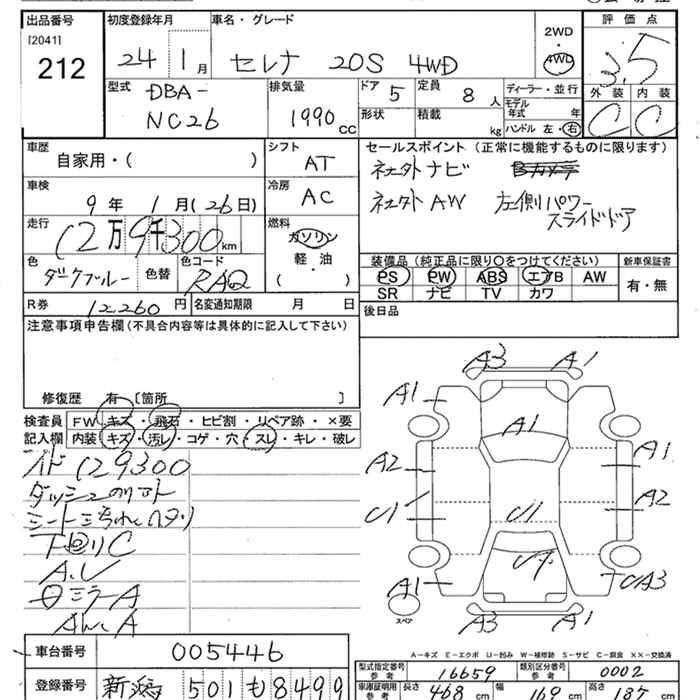 出品番号 初度登録年月 車名・グレード 2WD 評価点
[2041] 24 1月 セレナ 20S 4WD 4WD 3.5
212
型式 DBA- 排気量 ドア 5 定員 8人 ディーラー・並行 外装 内装
NC26 1990 cc 形状 積載 kg モデル年式 年 C C
ハンドル 左・右
車歴 シフト セールスポイント(正常に機能するものに限ります)
自家用・( ) AT 社外ナビ
車検 冷房 社外AW 左側パワースライドドア
9年 1月(26日) AC
走行 燃料
12万9千300km ガソリン
色 色替 色コード 軽・油 装備品(純正品に限り○をつけてください) 新車保証書
ダークブルー RAQ ( ) PS PW ABS エアB AW 有・無
SR ナビ TV カワ
R券 12260円 名変通知期限 月 日 後日品
注意事項申告欄(不具合内容等は具体的に記入して下さい)
修復歴 有 [箇所 ]
検査員 FW キズ・飛石・ヒビ割・リペア跡・×要
記入欄 内装 キズ・汚レ・コゲ・穴・スレ・キレ・破レ
129300
下回りC
A.U
ミラーA
AW.A
A3 A1
A1 A1
A2 A1
U1 U1 A2
A1 UA3
スペア A3 A1
A-キズ E-エクボ U-凹み W-補修跡 S-サビ C-腐食 ××-交換済
車台番号 005446 型式指定番号 参考 16659 類別区分番号 参考 0002
登録番号 新潟 501 も 8499 車庫証明用 参考 長さ 468 cm 幅 169 cm 高さ 187 cm